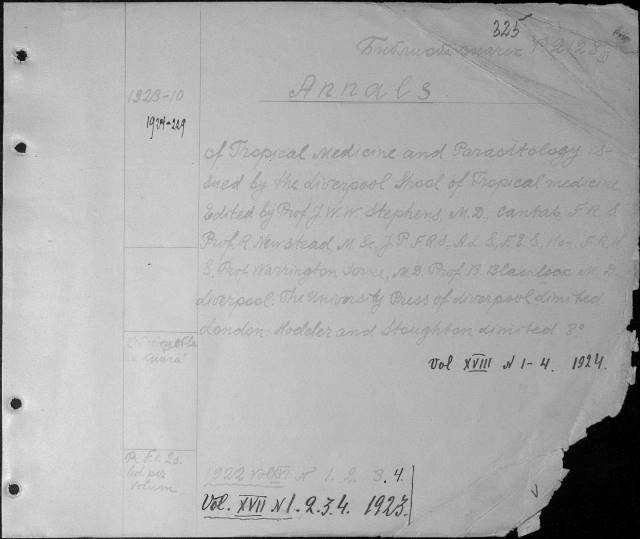 325
P 2128
1923-10
Annals
1924-229
of Tropical Medicine and Parasitology is-
sued by the Liverpool Shool of Tropical medicine
Edited by Prof. J. W. W. Stephens, M.D. Cantab. F. R. S.
Prof. R. Newstead, M. Sc. J. P. F. R. S. A. L. S., F. E. S. Hon. F. R. H
S, Prof. Warrington Yorke, M. D. Prof. B. Blacklock M. D.
Liverpool. The University Press of Liverpool Limited
London: Hodder and Stoughton Limited 8°
Vol XVIII N 1-4. 1924.
volum
1922 Vol XVI N 1. 2. 3. 4.
Vol. XVII N 1. 2. 3. 4. 1923.